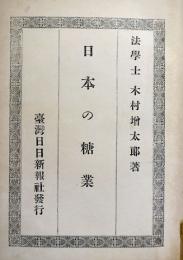 法學士 木村增太郎著
日本の糖業
臺灣日日新報社發行